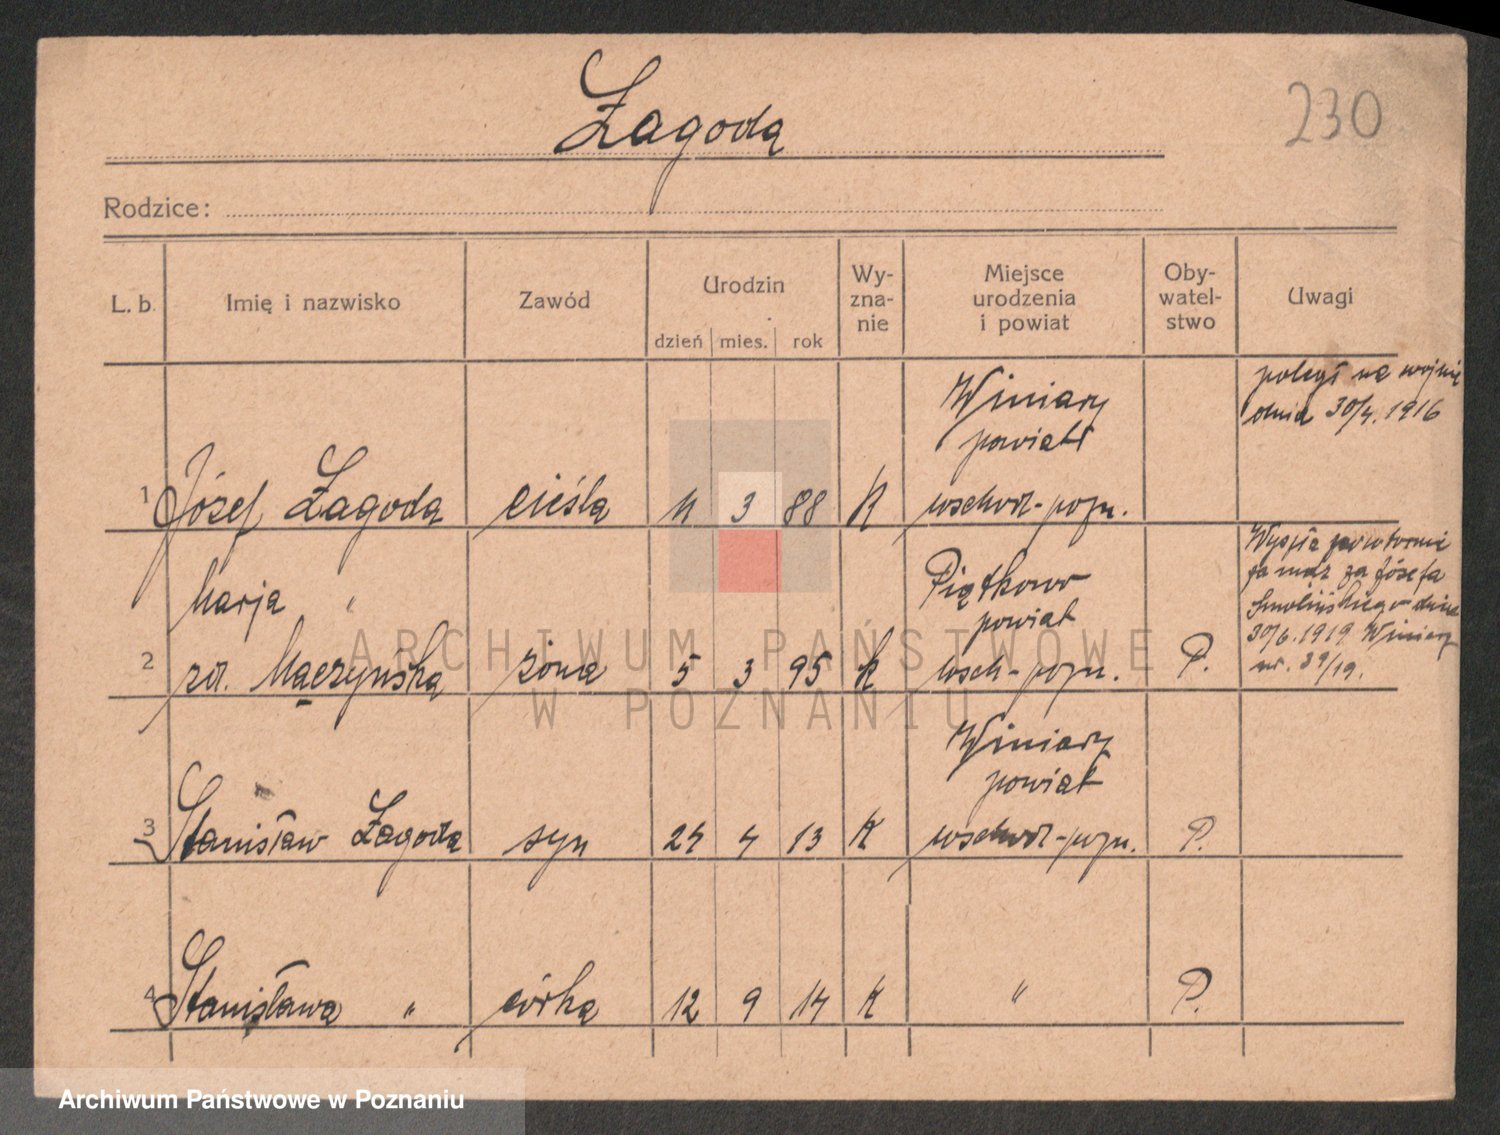 Żagoda
230
Rodzice:
L. b.
Imię i nazwisko
Zawód
Urodzin
dzień mies. rok
Wy-
zna-
nie
Miejsce
urodzenia
i powiat
Oby-
watel-
stwo
Uwagi
Winiary
powiat
poległ na wojnie
dnia 30/4. 1916
1 Józef Żagoda cieśla 11 3 88 K wschod-pozn.
Marja "
Piątkowo
powiat
2 zd. Mączyńska żona 5 3 95 K wsch-pozn. P.
Wyszła powtórnie
za mąż za Józefa
Smolińskiego dnia
30/6. 1919 Winiary
nr. 39/19.
Winiary
powiat
3 Stanisław Żagoda syn 24 4 13 K wschod-pozn. P.
4 Stanisława " córka 12 9 14 K " P.
ARCHIWUM PAŃSTWOWE
W POZNANIU
Archiwum Państwowe w Poznaniu